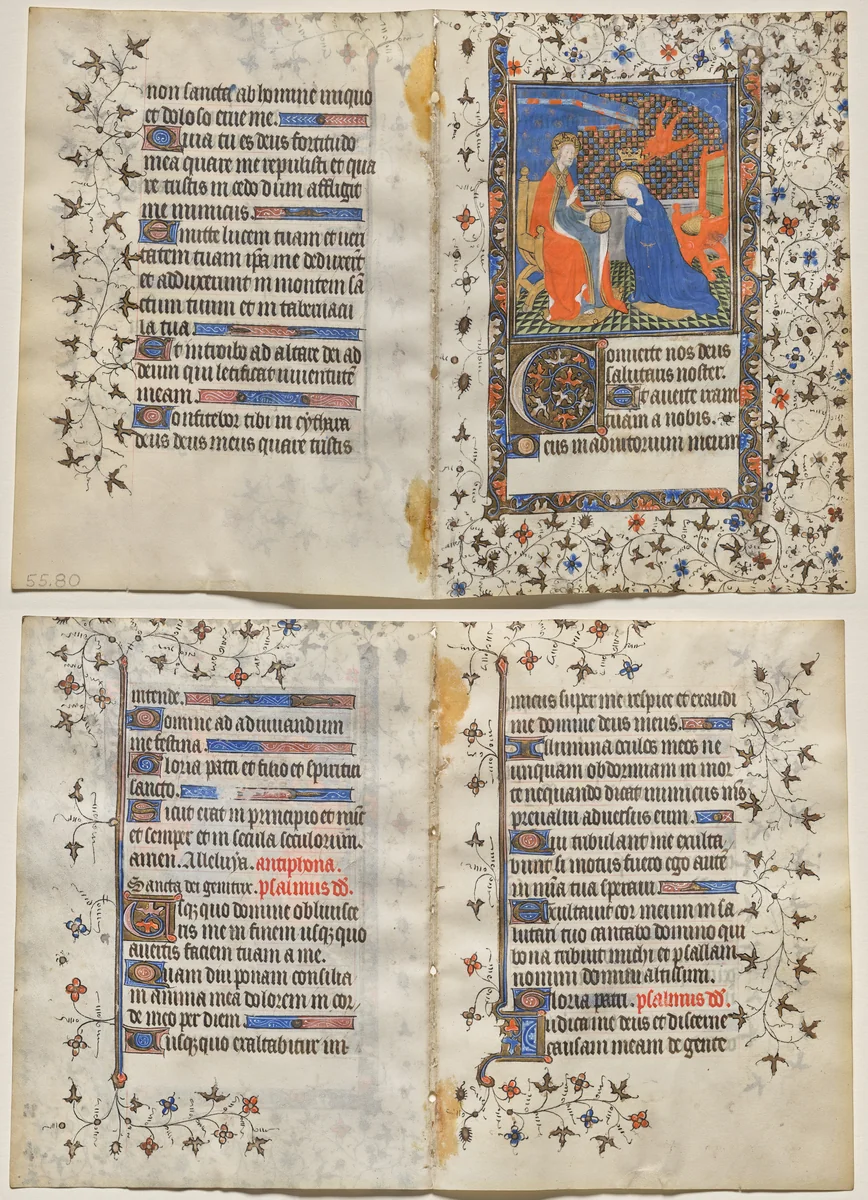 non sancta ab homine iniquo
et doloso erue me.
Quia tu es deus fortitudo
mea quare me repulisti et qua
re tristis incedo dum affligit
me inimicus.
Emitte lucem tuam et veri
tatem tuam ipa me deduxerūt
et adduxerunt in montem sā
ctum tuum et in tabernacu
la tua.
Et introibo ad altare dei ad
deum qui letificat iuuentutē
meam.
Confitebor tibi in cythara
deus deus meus quare tristis
55.80
Conuerte nos deus
salutaris noster.
Et auerte iram
tuam a nobis.
Deus in adiutorium meum
intende.
Domine ad adiuuandum
me festina.
Gloria patri et filio et spiritui
sancto.
Sicut erat in principio et nūc
et semper et in secula seculorum.
amen. Alleluya. antiphona.
Sancta dei genitrix. psalmus dd.
Usquequo domine obliuisce
ris me in finem usquequo
auertis faciem tuam a me.
Quam diu ponam consilia
in anima mea dolorem in cor
de meo per diem.
Usquequo exaltabitur ini
micus super me respice et exaudi
me domine deus meus.
Illumina oculos meos ne
unquam obdormiam in mor
te nequando dicat inimicus m̄s
preualui aduersus eum.
Qui tribulant me exulta
bunt si motus fuero ego autē
in mīa tua speraui.
Exultauit cor meum in sa
lutari tuo cantabo domino qui
bona tribuit michi et psallam
nomini domini altissimi.
Gloria patri. psalmus dd.
Iudica me deus et discerne
causam meam de gente